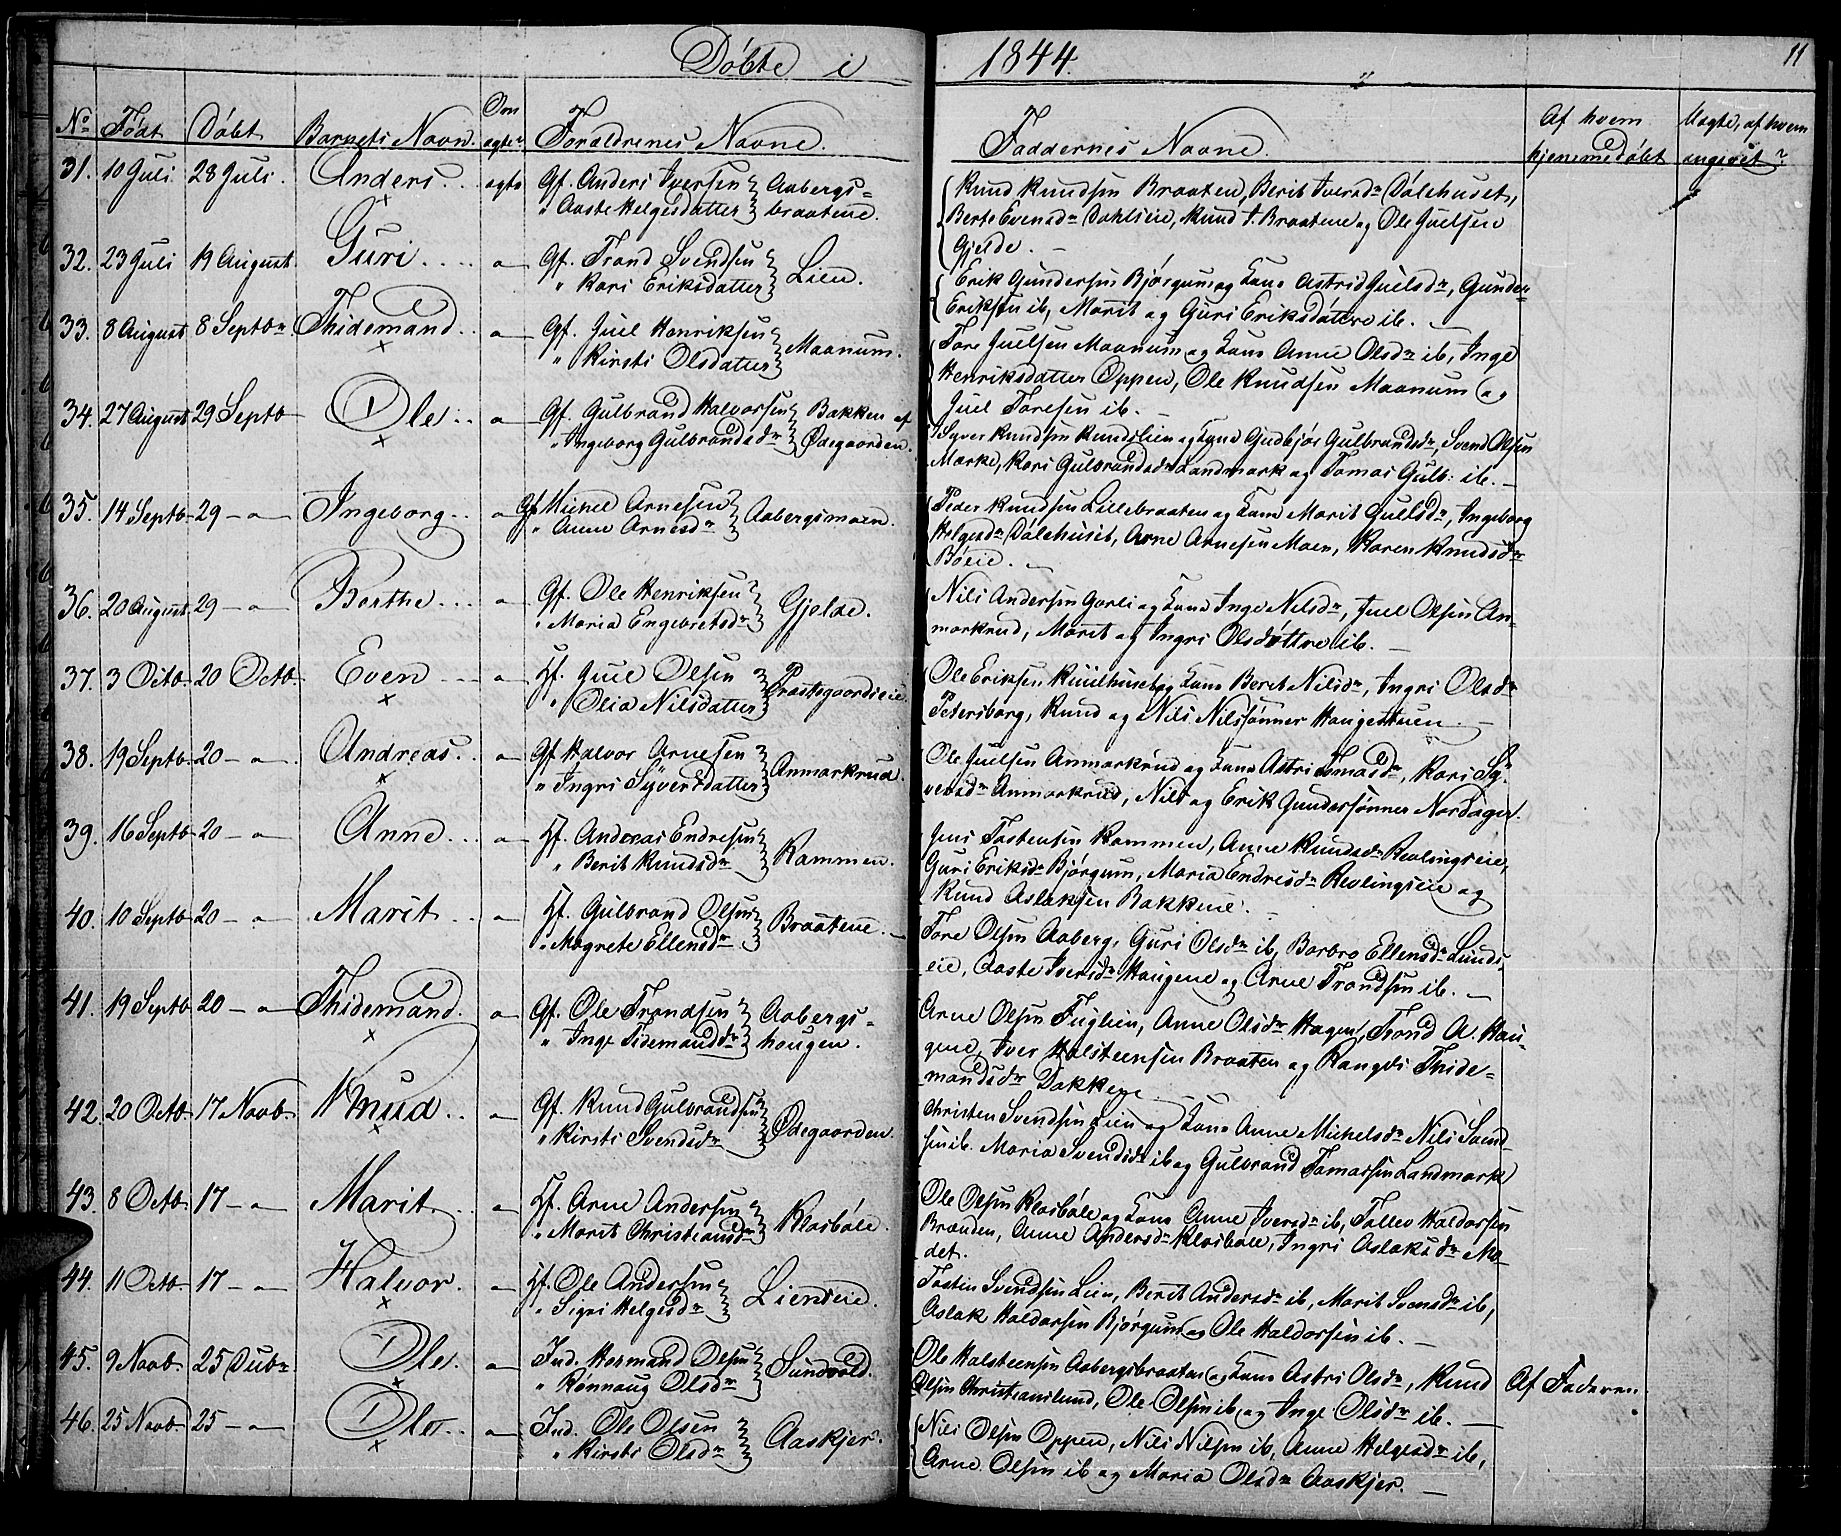 Døbte i 1844.
11
No Født Døbt Barnets Navn. Om ægte Forældrenes Navne. Faddernes Navne. Af hvem hjemmedøbt Uægte, af hvem angivet?
31. 10 Juli 28 Juli. Anders... ægte Gf. Anders Iversen Aabergs=
" Aaste Helgesdatter braatene.
Knud Knudsen Braaten, Berit Iversdr Dølehuset,
Berte Evensdr Dahlseie, Knud I. Braatene og Ole Juelsen
Gjelde. -
32. 23 Juli 19 August Guri.... " Gf. Trond Svendsen Lien.
" Kari Eriksdatter
Erik Gundersen Bjørgum og Kone Astrid Juelsdr, Gunder
Eriksen ib, Marit og Guri Eriksdøttre ib. -
33. 8 August 8 Septbr Thidemand. " Gf. Juel Henriksen Maanum.
" Kirsti Olsdatter
Tore Juelsen Maanum og Kone Anne Olsdr ib, Inge
Henriksdatter Oppen, Ole Knudsen Maanum og
Juel Toresen ib. -
34. 27 August 29 Septb Ole.. " Gf. Gulbrand Halvorsen Bakken af
" Ingeborg Gulbrandsdr Ødegaarden.
Syver Knudsen Knudslien og Kone Gudbjør Gulbrandsdr, Svend Olsen
Mærke, Kari Gulbrandsdr Landmark og Tomas Gulb: ib. -
35. 14 Septb 29 - " - Ingeborg.. " Gf. Michel Arnesen Aabergsmoen.
" Anne Arnesdr
Peder Knudsen Lillebraaten og Kone Marit Gullsdr, Ingeborg
Helgesdr Dølehuset, Arne Arnesen Moen, Karen Knudsdr
Bøeie. -
36. 20 August 29 - " - Berthe... " Gf. Ole Henriksen Gjelde.
" Maria Engebretsdr
Nils Andersen Garli og Kone Inge Nilsdr, Juel Olsen An-
markrud, Marit og Ingri Olsdøttre ib. -
37. 3 Octb. 20 Octb. Even... " Hf. Juel Olsen Præstegaardseie
" Olia Nilsdatter
Ole Eriksen Kuulhuset og Kone Berit Nilsdr, Ingri Olsdr
Petersborg, Knud og Nils Nilssønner Haugestuen. -
38. 19 Septb 20 - " - Andreas.. " Gf. Halvor Arnesen Anmarkrud.
" Ingri Syversdatter
Ole Juelsen Anmarkrud og Kone Astri Tomasdr, Kari Sy-
versdr Anmarkrud, Nils og Erik Gunderssønner Nordager.
39. 16 Septb 20 - " - Anne... " Hf. Andreas Endresen Kammen.
" Berit Knudsdr
Jens Tostensen Kammen, Anne Knudsdr Revlingseie,
Guri Eriksdr Bjørgum, Maria Endresdr Revlingseie og
Knud Aslaksen Bakkene. -
40. 10 Septb 20 - " - Marit... " Hf. Gulbrand Olsen Braatene. -
" Magrete Ellensdr
Tore Olsen Aaberg, Guri Olsdr ib, Barbro Ellensdr Lunds-
eie, Aaste Iversdr Haugene og Arne Trondsen ib. -
41. 19 Septb 20 - " - Thidemand. " Gf. Ole Trondsen Aabergs-
" Inge Tidemandsdr haugen.
Arne Olsen Fuglien, Anne Olsdr Hagen, Trond A. Hau-
gene, Iver Halsteensen Braaten og Rangdi Thide-
mandsdr Bakkene
42. 20 Octb. 17 Novb. Knud.. " Gf. Knud Gulbrandsen Ødegaarden.
" Kirsti Svendsdr
Christen Svendsen Lien og Kone Anne Michelsdr Nils Svend-
sen ib. Maria Svendsdr ib og Gulbrand Tomassen Landmark
43. 8 Octb. 17 - " - Marit.. " Hf. Arne Andersen Klosbøle.
" Marit Christiansdr
Ole Olsen Klosbøle og Kone Anne Iversdr ib, Tollev Haldorsen
Brænden, Anne Andersdr Klosbøle, Ingri Aslaksdr Mo-
det.
44. 11 Octb. 17 - " - Halvor. " Hf. Ole Andersen Lienseie.
" Sigri Helgesdr
Tosten Svendsen Lien, Berit Andersdr ib, Marit Svensdr ib,
Aslak Haldorsen Bjørgum og Ole Haldorsen ib. -
45. 9 Novb. 25 Dcbr Ole. " Ind. Hermand Olsen Sundvold.
" Rønnaug Olsdr
Ole Halsteensen Aabergsbraaten og Kone Astri Olsdr, Knud
Olsen Christianslund, Ole Olsen ib og Inge Olsdr ib. - Af Faderen.
46. 25 Novb. 25 - " - Ole.. " Ind. Ole Olsen Aaskjer.
" Kirsti Olsdr
Nils Olsen Oppen, Nils Nilsen ib, Anne Helgesdr ib,
Arne Olsen ib og Maria Olsdr Aaskjer. -